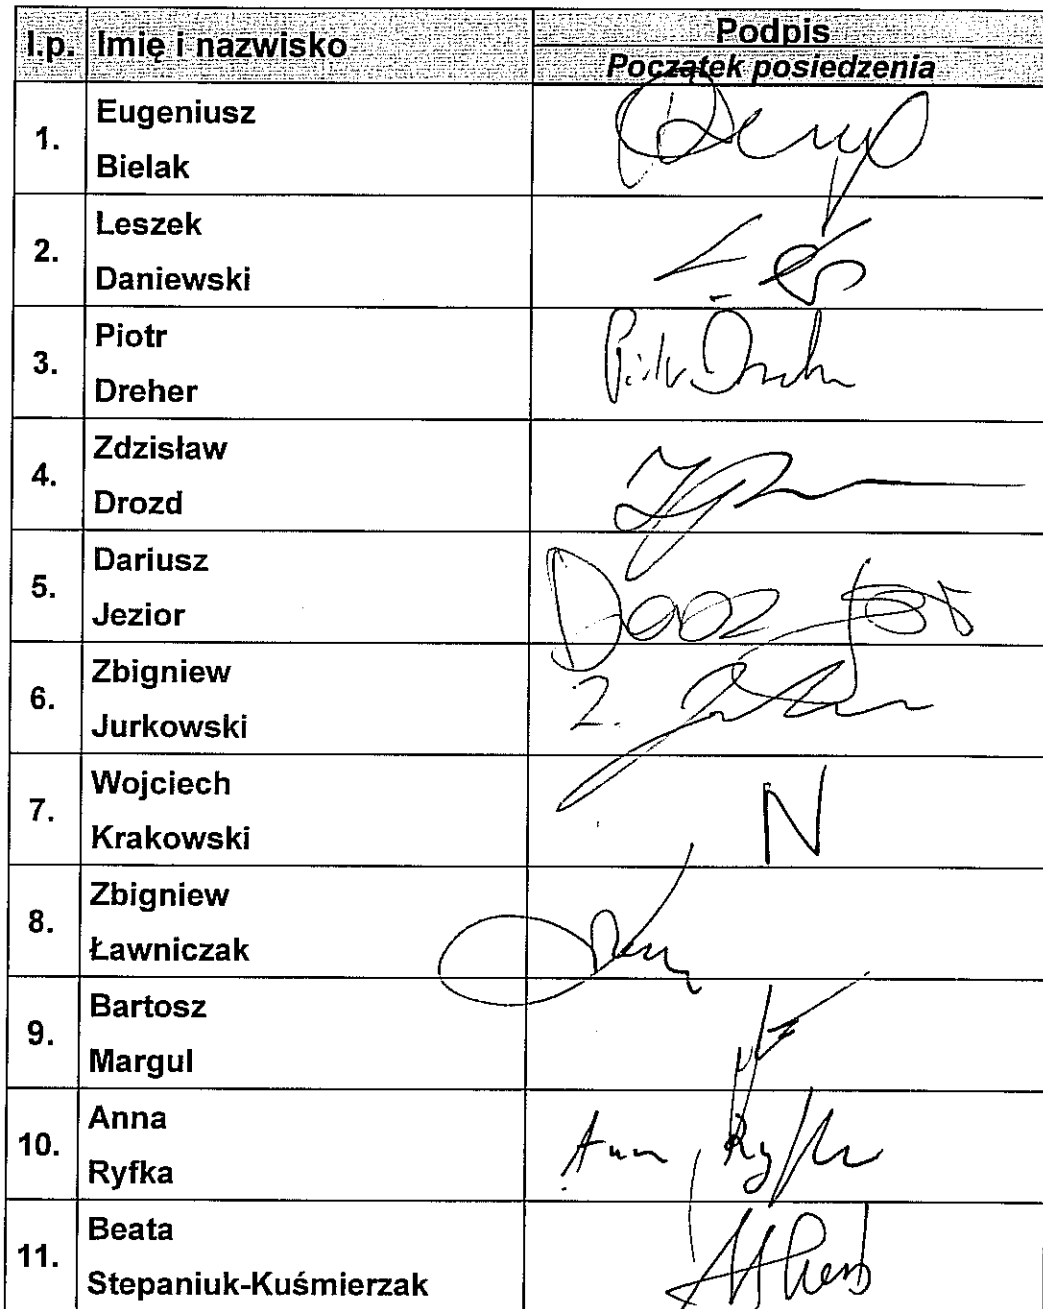 l.p. Imię i nazwisko Podpis
Początek posiedzenia
1. Eugeniusz
Bielak
2. Leszek
Daniewski
3. Piotr
Dreher
4. Zdzisław
Drozd
5. Dariusz
Jezior
6. Zbigniew
Jurkowski
Z.
7. Wojciech
Krakowski
N
8. Zbigniew
Ławniczak
9. Bartosz
Margul
10. Anna
Ryfka
Anna Ryfka
11. Beata
Stepaniuk-Kuśmierzak